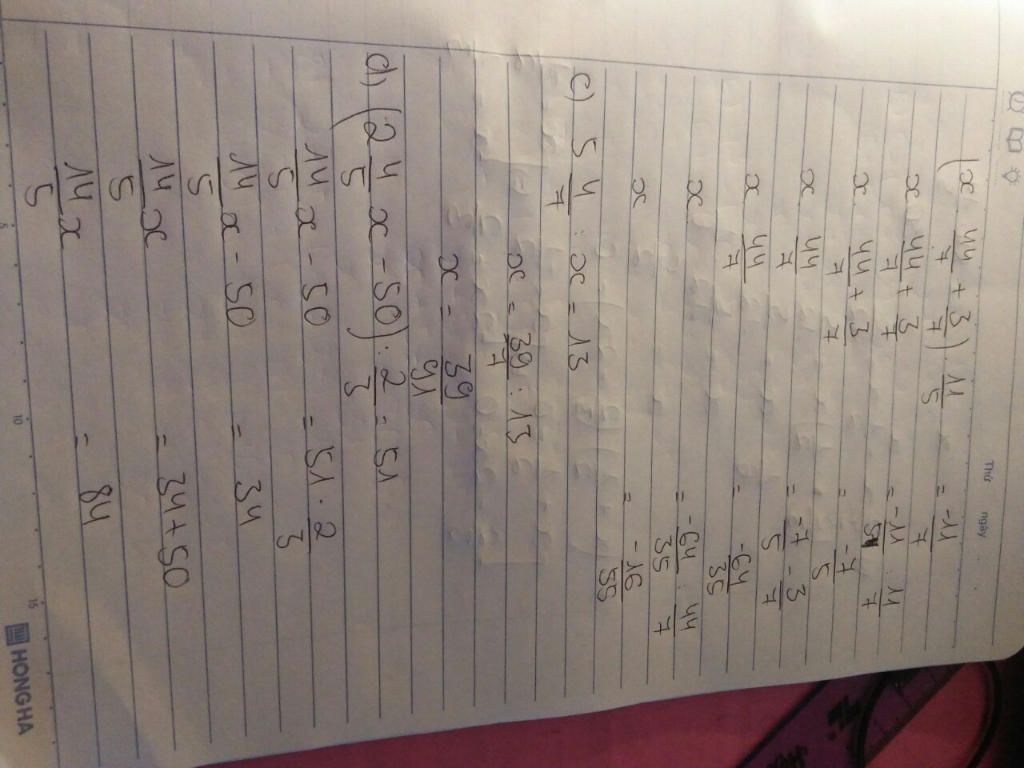 Thứ ngày
(x 44/7 + 3/7) . 11/5 = -11/7
x 44/7 + 3/7 = -11/5 : 11/7
x 44/7 + 3/7 = -7/5
x 44/7 = -7/5 - 3/7
x 44/7 = -64/35
x = -64/35 : 44/7
x = -16/55
c) 5 4/7 : x = 13
x = 39/7 : 13
x = 39/91
d) (2 4/5 x - 50) : 2/3 = 51
14/5 x - 50 = 51 . 2/3
14/5 x - 50 = 34
14/5 x = 34 + 50
14/5 x = 84
5 10 15
HONG HA